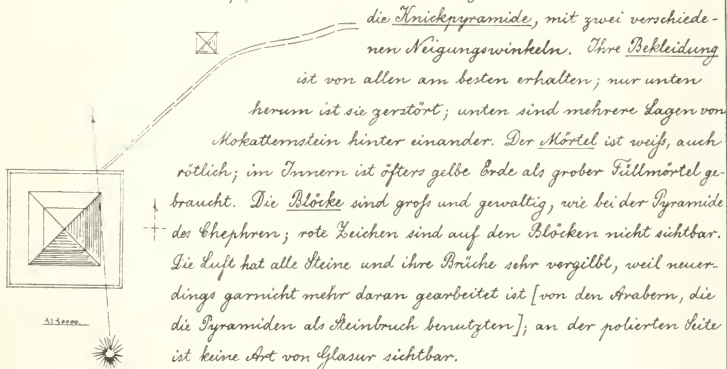 die Knickpyramide, mit zwei verschiede-
nen Neigungswinkeln. Ihre Bekleidung
ist von allen am besten erhalten; nur unten
herum ist sie zerstört; unten sind mehrere Lagen von
Mokattemstein hinter einander. Der Mörtel ist weiß, auch
rötlich; im Innern ist öfters gelbe Erde als grober Füllmörtel ge-
braucht. Die Blöcke sind groß und gewaltig, wie bei der Pyramide
des Chephren; rote Zeichen sind auf den Blöcken nicht sichtbar.
Die Luft hat alle Steine und ihre Brüche sehr vergilbt, weil neuer-
dings garnicht mehr daran gearbeitet ist [von den Arabern, die
die Pyramiden als Steinbruch benutzten]; an der polierten Seite
ist keine Art von Glasur sichtbar.